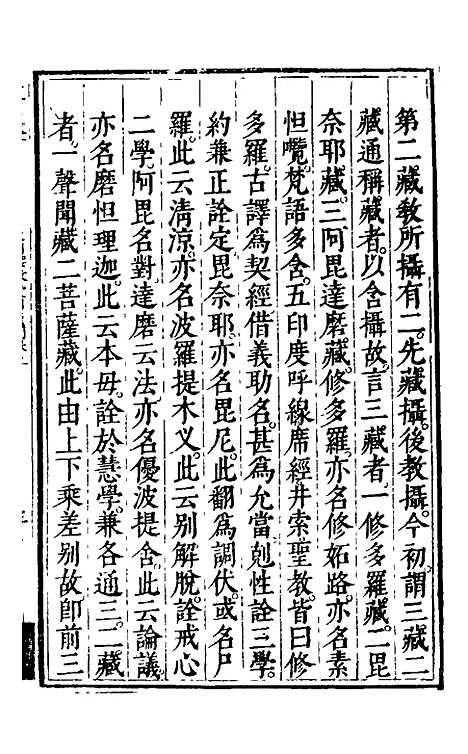 第二藏教所攝有二。先藏攝。後教攝。今初。謂三藏二
藏通稱藏者。以含攝故。言三藏者。一修多羅藏。二毘
奈耶藏。三阿毘達磨藏。修多羅。亦名修妬路。亦名素
怛纜。梵語多含。五印度呼線席經井索聖教。皆曰修
多羅。古譯為契經。借義助名。甚為允當。剋性詮三學。
約兼正詮定。毘奈耶。亦名毘尼。此翻為調伏。或名尸
羅。此云清涼。亦名波羅提木义。此云別解脫。詮戒心
二學。阿毘名對。達磨云法。亦名優波提舍。此云論議。
亦名磨怛理迦。此云本毋。詮於慧學。兼各通三。二藏
者。一聲聞藏。二菩薩藏。此由上下乘差別故。卽前三